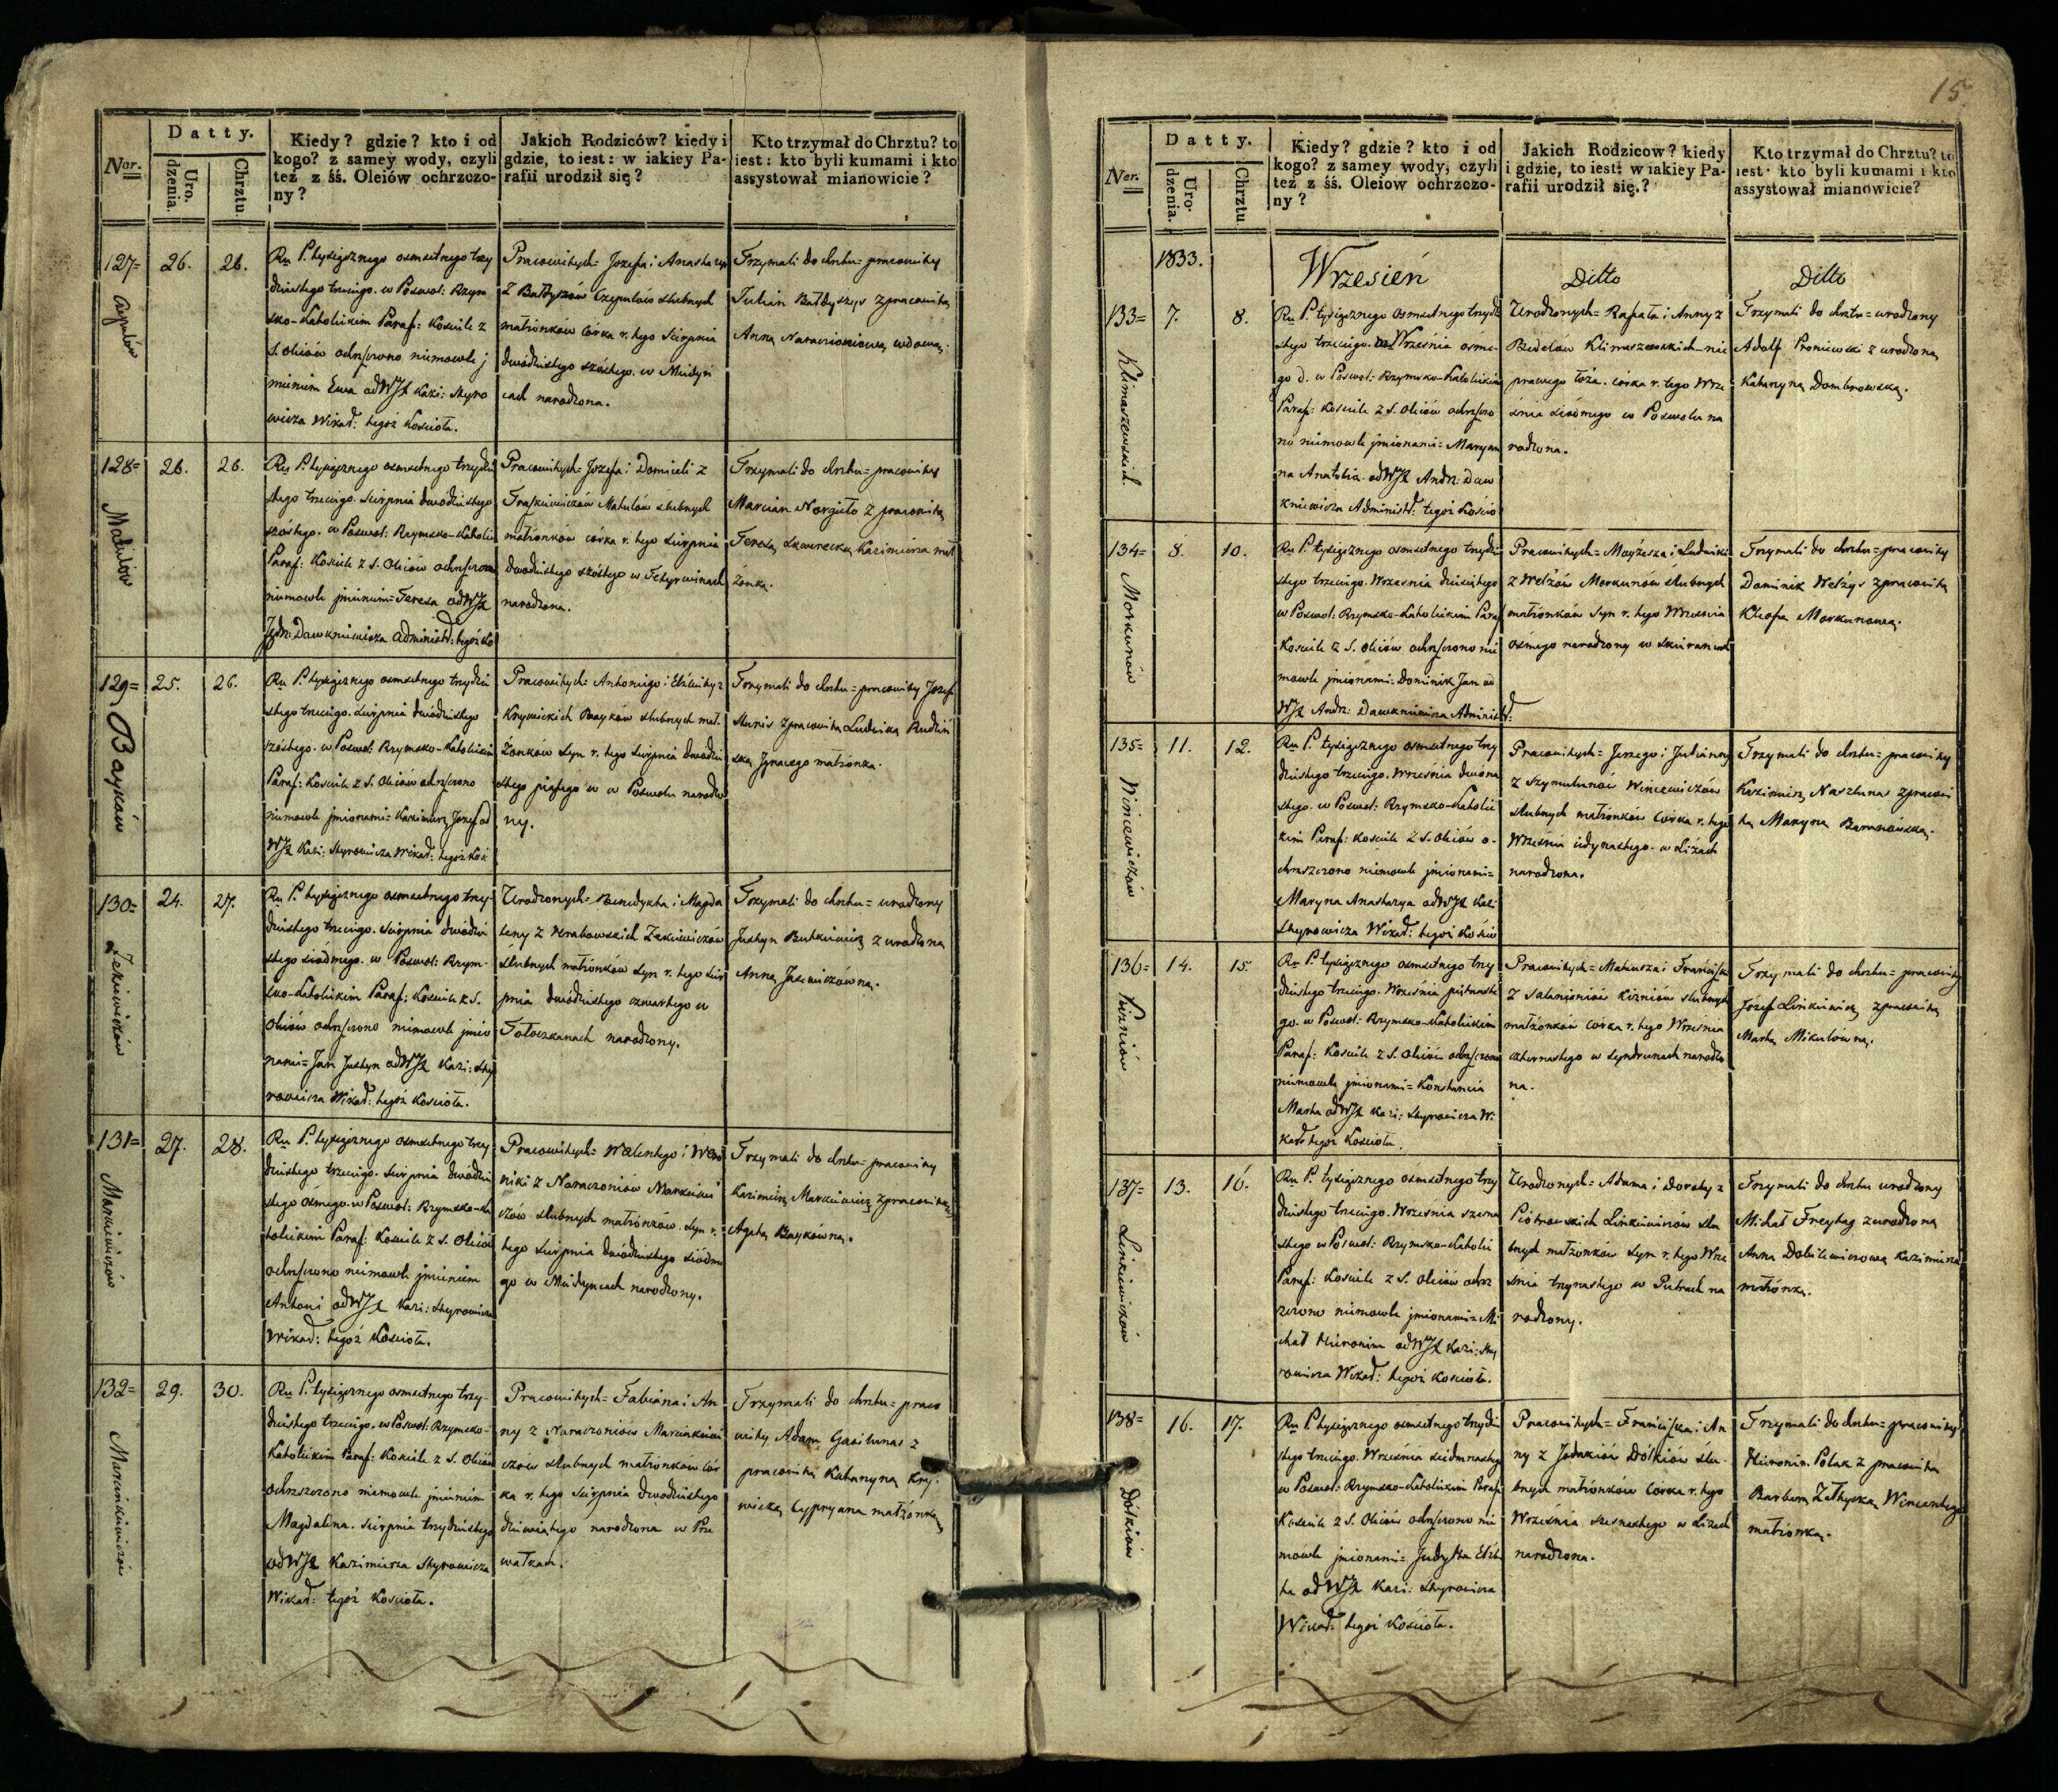 15.
Nor.
Datty.
Uro-
dzenia.
Chrztu.
Kiedy? gdzie? kto i od
kogo? z samey wody, czyli
też z śś. Oleiów ochrzczo-
ny?
Jakich Rodziców? kiedy i
gdzie, to iest: w iakiey Pa-
rafii urodził się?
Kto trzymał do Chrztu? to
iest: kto byli kumami i kto
assystował mianowicie?
127=
26.
26.
Ru P. tysiącznego osmsetnego trzy
dziestego trzeciego. w Poswol: Rzym
sko-Katolickim Paraf: Kościele z
S. Oleiów ochrzczono niemowle j
mieniem Ewa od WJX Kazi: Skyro
wicza Wikar: tegoż Kościoła.
Pracowitych= Jozefa i Anastazyi
z Bałdyszów Czepulów slubnych
małżonków córka r. tego Sierpnia
dwódziestego szóstego. w Meidyń
cach narodzona.
Trzymali do chrztu= pracowity
Julian Bałdyszys z pracowitą
Anną Naraczioniową wdową.
128=
Matulów
26.
26.
Ru P. tysiącznego osmsetnego trzydzie
stego trzeciego. Sierpnia dwódziestego
szóstego. w Poswol: Rzymsko-Katolic
Paraf: Kościele z S. Oleiów ochrzczono
niemowle jmieniem= Teresa od WJX
Jędr: Dawkniewicza Administr: tegoż Ko
Pracowitych= Jozefa i Domiceli z
Traszkiewiczów Matulów slubnych
małżonków córka r. tego Sierpnia
dwódziestego szóstego w
narodzona.
Trzymali do chrztu= pracowity
Marcian Norgiło z pracowitą
Teresą Kazimierza mał
żonką.
129=
Baykow
25.
26.
Ru P. tysiącznego osmsetnego trzydzie
stego trzeciego. Sierpnia dwódziestego
szóstego. w Poswol: Rzymsko-Katolickim
Paraf: Kościele z S. Oleiów ochrzczono
niemowle jmionami= Kazimierz Jozef od
WJX Kazi: Skyrowicza Wikar: tegoż Koś
Pracowitych= Antoniego i Elżbiety z
Krywickich Bayków slubnych mał-
żonków syn r. tego Sierpnia dwódzie
stego piątego w w Poswolu narodzo
ny.
Trzymali do chrztu= pracowity Jozef
z pracowitą Ludwiką Rudziń
ską Jgnacego małżonką.
130=
Zekiewiczów
24.
27.
Ru P. tysiącznego osmsetnego trzy-
dziestego trzeciego. Sierpnia dwódzie
stego siódmego. w Poswol: Rzym-
sko-Katolickim Paraf: Kościele z S.
Oleiów ochrzczono niemowle jmio
nami= Jan Justyn od WJX Kazi: Sky
rowicza Wikar: tegoż Kościoła.
Urodzonych= Benedykta i Magda
leny z Zekiewiczów
slubnych małżonków syn r. tego Sier
pnia dwódziestego czwartego w
Tołoczkanach narodzony.
Trzymali do chrztu= urodzony
Justyn Butkiewicz z urodzoną
Anną Jasewiczówną.
131=
Markiewiczów
27.
28.
Ru P. tysiącznego osmsetnego trzy
dziestego trzeciego. Sierpnia dwódzie
stego ósmego. w Poswol: Rzymsko-Ka
tolickim Paraf: Kościele z S. Oleiów
ochrzczono niemowle jmieniem
Antoni od WJX Kazi: Skyrowicza
Wikar: tegoż Kościoła.
Pracowitych= Walentego i Wero
niki z Naraczoniów Markiewi
czów slubnych małżonków. syn r.
tego Sierpnia dwódziestego siódme
go w Meidyncach narodzony.
Trzymali do chrztu= pracowity
Kazimierz Markiewicz z pracowitą
Agatą Baykówną.
132=
Marcinkiewiczów
29.
30.
Ru P. tysiącznego osmsetnego trzy-
dziestego trzeciego. w Poswol: Rzymsko-
Katolickim Paraf: Kościele z S. Oleiów
ochrzczono niemowle jmieniem
Magdalena. Sierpnia trzydziestego
od WJX Kazimierza Skyrowicza
Wikar: tegoż Kościoła.
Pracowitych= Fabiana i An
ny z Naraczoniów Marcinkiewi
czów slubnych małżonków cór
ka r. tego Sierpnia dwódziestego
dziewiątego narodzona w Pu
wałkach.
Trzymali do chrztu= praco
wity Adam Gasiunas z
pracowitą Katarzyną Kry-
wicką Cypryana małżonką
Nor.
Datty.
Uro-
dzenia.
Chrztu
Kiedy? gdzie? kto i od
kogo? z samey wody, czyli
też z śś. Oleiow ochrzczo-
ny?
Jakich Rodzicow? kiedy
i gdzie, to iest: w iakiey Pa-
rafii urodził się.?
Kto trzymał do Chrztu? to
iest: kto byli kumami i kto
assystował mianowicie?
1833.
Wrzesień
Ditto
Ditto
133=
Klimaszewskich
7.
8.
Ru P. tysiącznego osmsetnego trzydzie
stego trzeciego. Września osme-
go d. w Poswol: Rzymsko-Katolickim
Paraf: Kościele z S. Oleiów ochrzczo
no niemowle jmionami= Maryan
na Anatolia od WJX Andr: Daw
kniewicza Administr: tegoż Kościo
Urodzonych= Rafała i Anny z
Klimaszewskich-nie
prawego łoża. córka r. tego Wrze
śnia siódmego w Poswolu na
rodzona.
Trzymali do chrztu= urodzony
Adolf Proniewski z urodzoną
Katarzyną Dombrowską.
134=
Morkunów
8.
10.
Ru P. tysiącznego osmsetnego trzydzie
stego trzeciego. Wrzesnia dziesiątego
w Poswol: Rzymsko-Katolickim Paraf
Kościele z S. Oleiów ochrzczono nie
mowle jmionami= Dominik Jan od
WJX Andr: Dawkniewicza Administr:
Pracowitych= Moyżesza i Ludwiki
z Wełżów Morkunów slubnych
małżonków syn r. tego Wrzesnia
osmego narodzony w
Trzymali do chrztu= pracowity
Dominik Wełżys z pracowitą
Kleofą Morkunową.
135=
Winiewiczów
11.
12.
Ru P. tysiącznego osmsetnego trzy
dziestego trzeciego. Września dwóna
stego. w Poswol: Rzymsko-Katolic
kim Paraf: Kościele z S. Oleiów o-
chrzszczono niemowle jmionami=
Maryna Anastazya od WJX Kazi:
Skyrowicza Wikar: tegoż Kościo
Pracowitych= Jerzego i Julianny
z Szymulunów Winiewiczów
slubnych małżonków córka r. tego
Września iedynastego. w Liżach
narodzona.
Trzymali do chrztu= pracowity
Kazimierz Naszlunas z pracowi
tą Maryną Baranowską.
136=
Kizniów
14.
15.
Ru P. tysiącznego osmsetnego trzy
dziestego trzeciego. Września piętnaste
go. w Poswol: Rzymsko-Katolickim
Paraf: Kościele z S. Oleiów ochrzczono
niemowle jmionami= Konstancia
Marta od WJX Kazi: Skyrowicza Wi
kar: tegoż Kościoła.
Pracowitych= Mateusza i Franciszki
z Salanioniów Kizniów slubnych
małżonków córka r. tego Wrzesnia
czternastego w Syndrunach narodzo
na.
Trzymali do chrztu= pracowity
Józef Linkiewicz z pracowitą
Martą Mikulówną.
137=
Linkiewiczów
13.
16.
Ru P. tysiącznego ośmsetnego trzy
dziestego trzeciego. Wrzesnia szesna
stego w Poswol: Rzymsko-Katolic
Paraf: Kościele z S. Oleiów ochrz
czono niemowle jmionami= Mi
chał Hieronim od WJX Kazi: Sky
rowicza Wikar: tegoż Kościoła.
Urodzonych= Adama i Doroty z
Piotrowskich Linkiewiczów slu
bnych małżonków syn r. tego Wrze
snia trzynastego w Putrach na
rodzony.
Trzymali do chrztu urodzony
Michał Freytag z urodzoną
Anną Dobilewiczową Kazimierza
małżonką.
138=
Dółkiów
16.
17.
Ru P. tysiącznego osmsetnego trzydzie
stego trzeciego. Września siedmnastego
w Poswol: Rzymsko-Katolickim Paraf
Kościele z S. Oleiów ochrzczono nie
mowle jmionami= Judytta Elżbi
ta od WJX Kazi: Skyrowicza
Wikar: tegoż Kościoła.
Pracowitych= Franciszka i An
ny z Jodakiów Dólkiów slu-
bnych małżonków córka r. tego
Września szesnastego w Liżach
narodzona.
Trzymali do chrztu= pracowity
Hieronim Polak z pracowitą
Barbarą Załtyską Wincentego
małżonką.